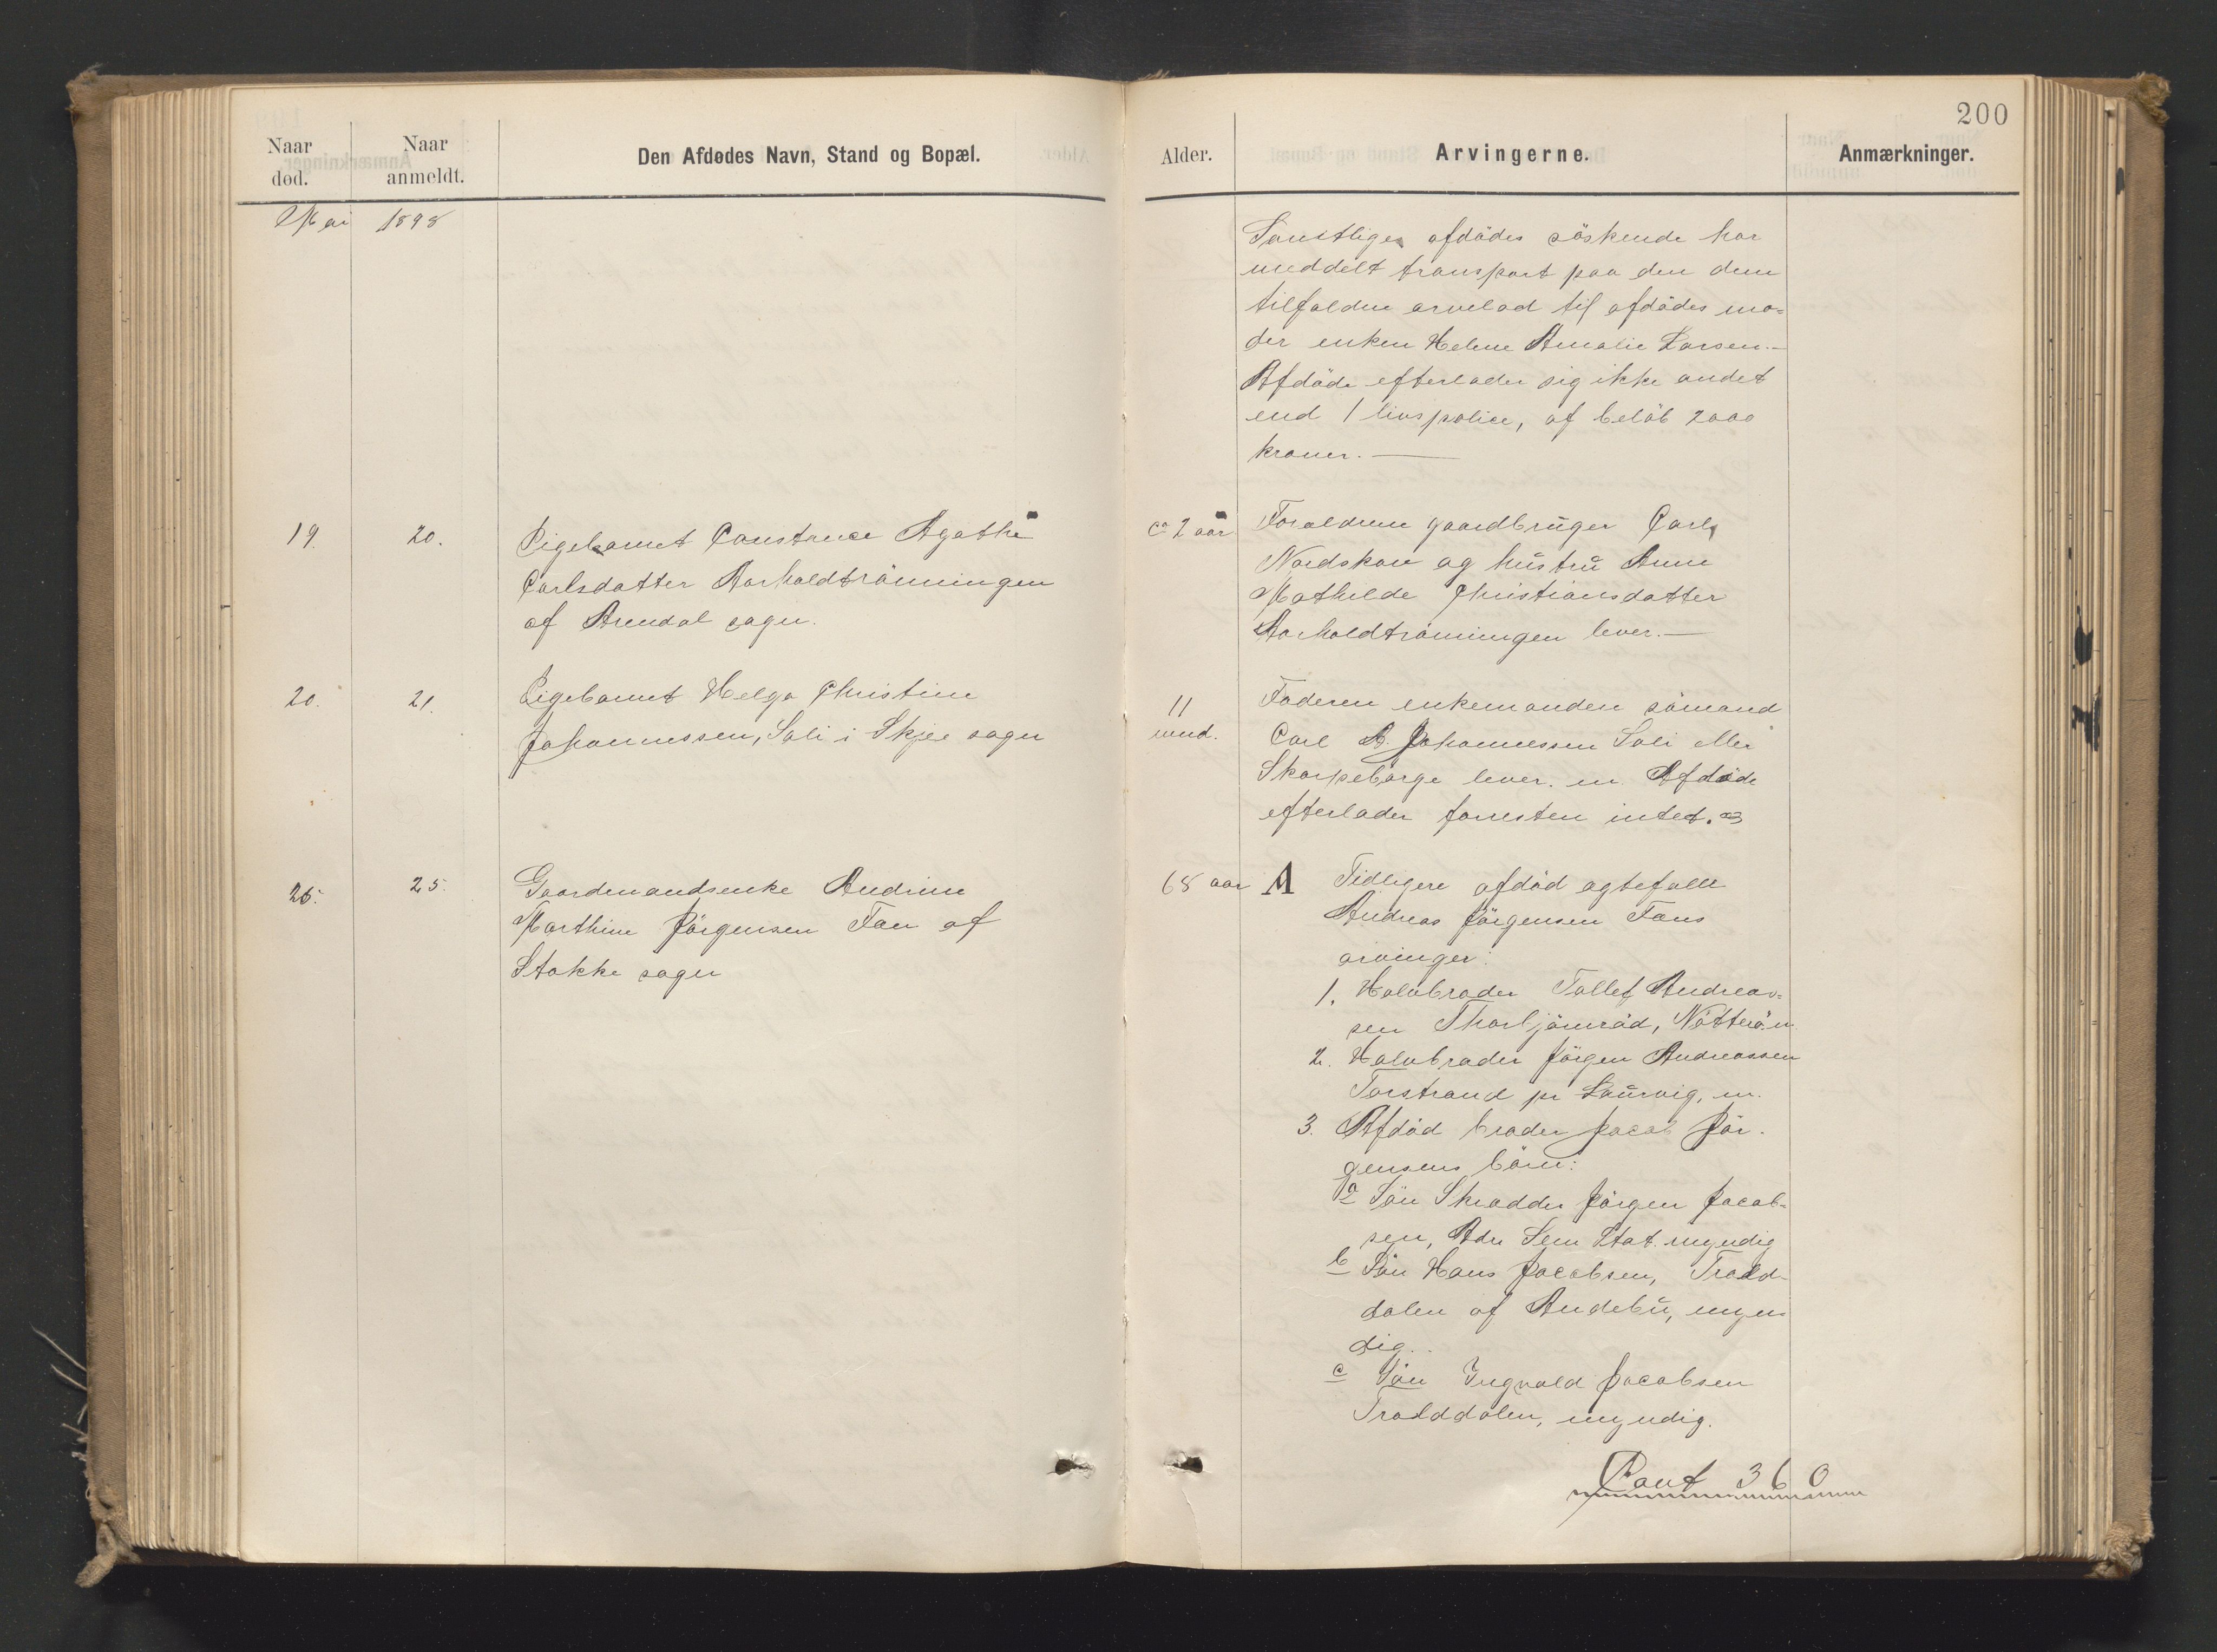 200
Naar død.
Naar anmeldt.
Den Afdødes Navn, Stand og Bopæl.
Alder.
Arvingerne.
Anmærkninger.
Mai 1898
Samtlige afdödes söskende har
meddelt transport paa den dem
tilfaldne arvelod til afdödes mo=
der enken Helene Amalie Larsen.—
Afdöde efterlader sig ikke andet
end 1 livspolice, af belöb 2000
kroner.—
19. 20.
Pigebarnet Constance Agathe
Carlsdatter Aarholdtrönningen
af Arendal sogn.
ca 2 aar
Forældrene gaardbruger Carl
Nordskov og hustru Anne
Mathilde Christiansdatter
Aarholdtrönningen lever.—
20. 21.
Pigebarnet Helga Christine
Johannessen, Soli i Skjee sogn
11
mnd.
Faderen enkemanden sömand
Carl A. Johannessen Soli eller
Skorpeborge lever. Afdöde
efterlader foresten intet.
25. 25.
Gaardmandsenke Andrine
Marthine Jörgensen Fæn af
Stokke sogn
68 aar
A Tidligere afdöd egtefælle
Andreas Jörgensen Fæns
arvinger:
1. Halvbroder Tollef Andreas=
sen Thorbjörnröd, Nötterön
2. Halvbroder Jörgen Andreassen
Torstrand pr Laurvig, m.
3. Afdöd broder Jacob Jör-
gensens börn:
a Sön Skrædder Jörgen Jacob=
sen, Adr Sem Stat. myndig
b Sön Hans Jacobsen, Trold-
dalen af Andebu, myn
dig.
c Sön Ingvald Jacobsen
Trolddalen, myndig.
360